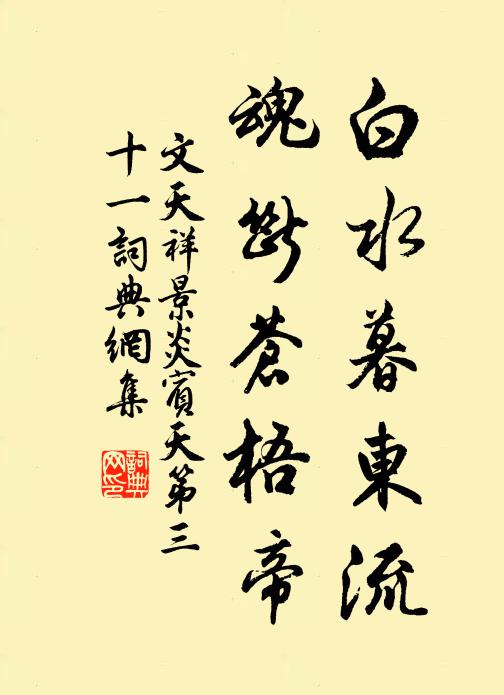 白水暮東流
魂斷蒼梧帝
文天祥景炎賓天第三
十一詞典網集
詞典
网印